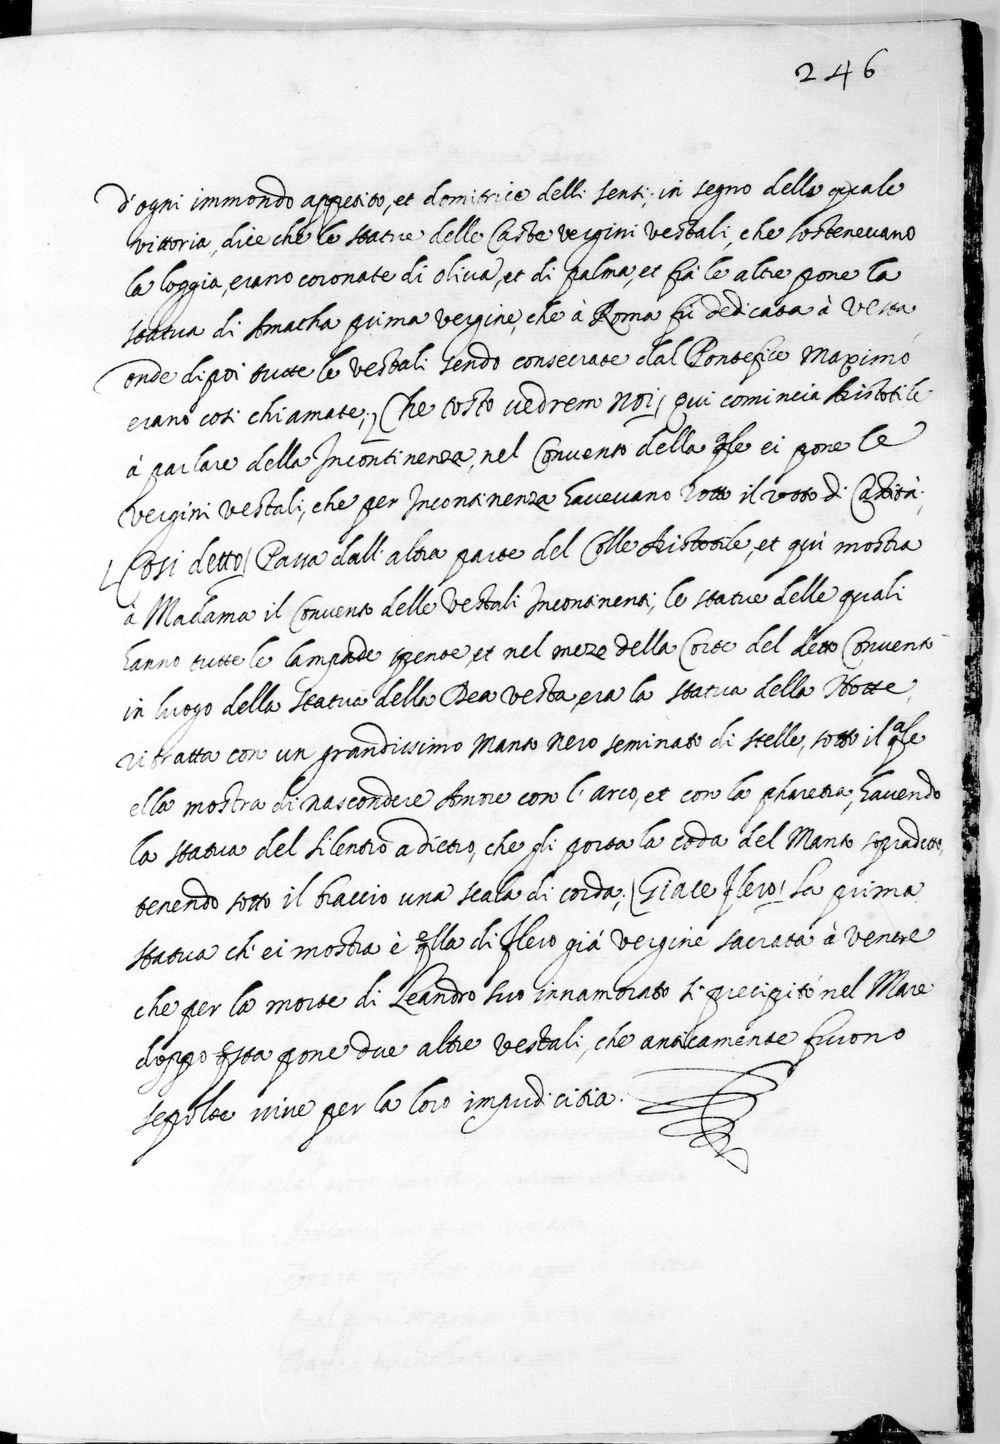 246
d'ogni immondo appetito, et domitrice delli sensi; in segno della quale
vittoria, dice che le statue delle Caste vergini vestali, che sostenevano
la loggia, erano coronate di oliva, et di palma, et frà le altre pone la
statua di Amatha prima vergine, che à Roma fù dedicata à Vesta
onde dipoi tutte le vestali sendo consecrate dal Pontefice Maximo
erano cosi chiamate; Che tosto vedrem noi/ qui comincia Aristotile
à parlare della Incontinenza, nel Convento della qle ei pone le
vergini vestali, che per Incontinenza havevano rotto il voto di Castità;
(Cosi detto/ Passa dall'altra parte del Colle Aristotile, et quì mostra
à Madama il Convento delle Vestali Incontinenti; le statue delle quali
hanno tutte le lampade spente, et nel mezo della Corte del detto Convento
in luogo della statua della Dea Vesta, era la statua della Notte,
ritratta con un grandissimo Manto nero seminato di stelle, sotto il qle
ella mostra di nascondere Amore con l'arco, et con la pharetra, havendo
la statua del silentio a dietro, che gli porta la coda del Manto sopradetto,
tenendo sotto il braccio una scala di corda; (Giace Hero/ La prima
statua ch'ei mostra è qlla di Hero già vergine sacrata à Venere
che per la morte di Leandro suo innamorato si precipitò nel Mare
doppo qsta pone due altre vestali, che anticamente furono
sepolte vive per la loro impudicitia.